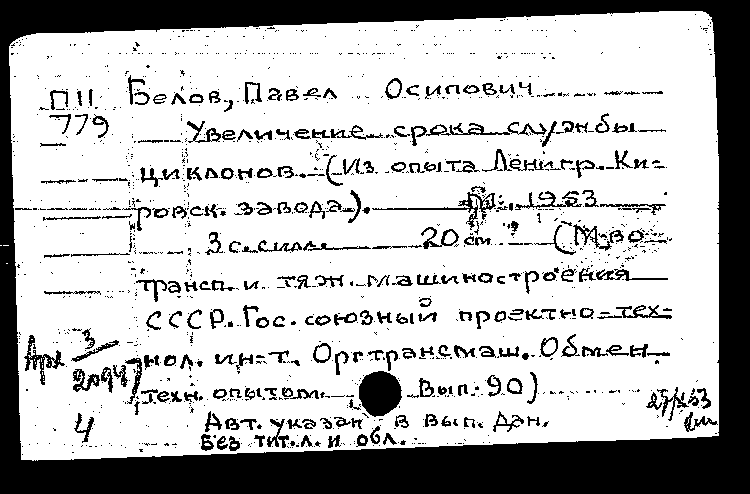 П11 Белов, Павел Осипович
779 Увеличение срока службы
циклонов. (Из опыта Ленингр. Ки=
ровск. завода). М., 1953
3 с. илл. 20 см (М-во
трансп. и тяж. машиностроения
СССР. Гос. союзный проектно-тех=
Арх 3/20947 нол. ин-т. Оргтрансмаш. Обмен
техн. опытом. Вып. 90)
4 Авт. указан в вып. дан.
Без тит. л. и обл.